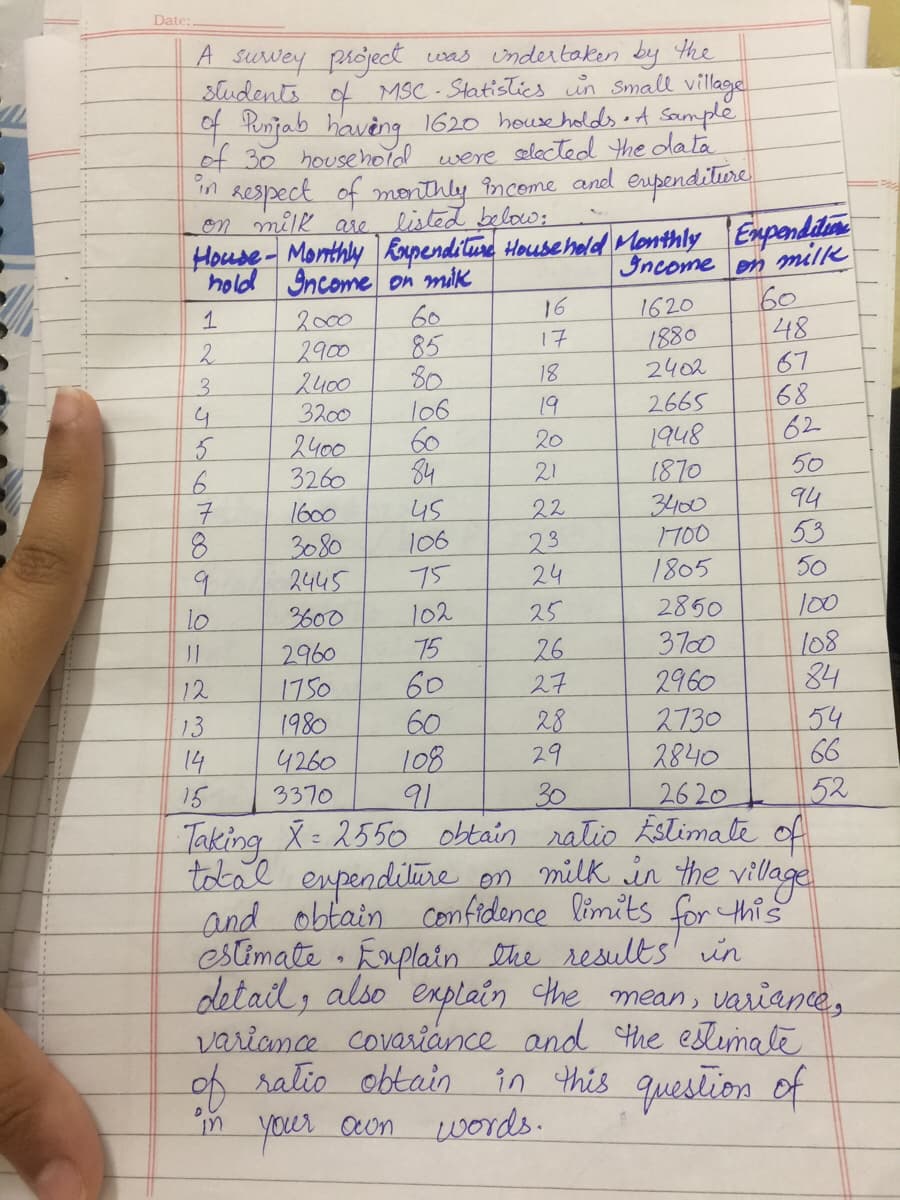 Date:
A survey project was undertaken by the
students of MSC - Statistics in small village
of Punjab having 1620 households. A Sample
of 30 household were selected the data
in respect of monthly income and expenditure
on milk are listed below:
House- Monthly Expenditure Household Monthly Expenditure
hold Income on milk Income on milk
1 2000 60 16 1620 60
2 2900 85 17 1880 48
3 2400 80 18 2402 67
4 3200 106 19 2665 68
5 2400 60 20 1948 62
6 3260 84 21 1870 50
7 1600 45 22 3400 94
8 3080 106 23 1700 53
9 2445 75 24 1805 50
10 3600 102 25 2850 100
11 2960 75 26 3700 108
12 1750 60 27 2960 84
13 1980 60 28 2730 54
14 4260 108 29 2840 66
15 3370 91 30 2620 52
Taking X̄ = 2550 obtain ratio Estimate of
total expenditure on milk in the village
and obtain confidence limits for this
estimate. Explain the results in
detail, also explain the mean, variance,
variance covariance and the estimate
of ratio obtain in this question of
in your own words.